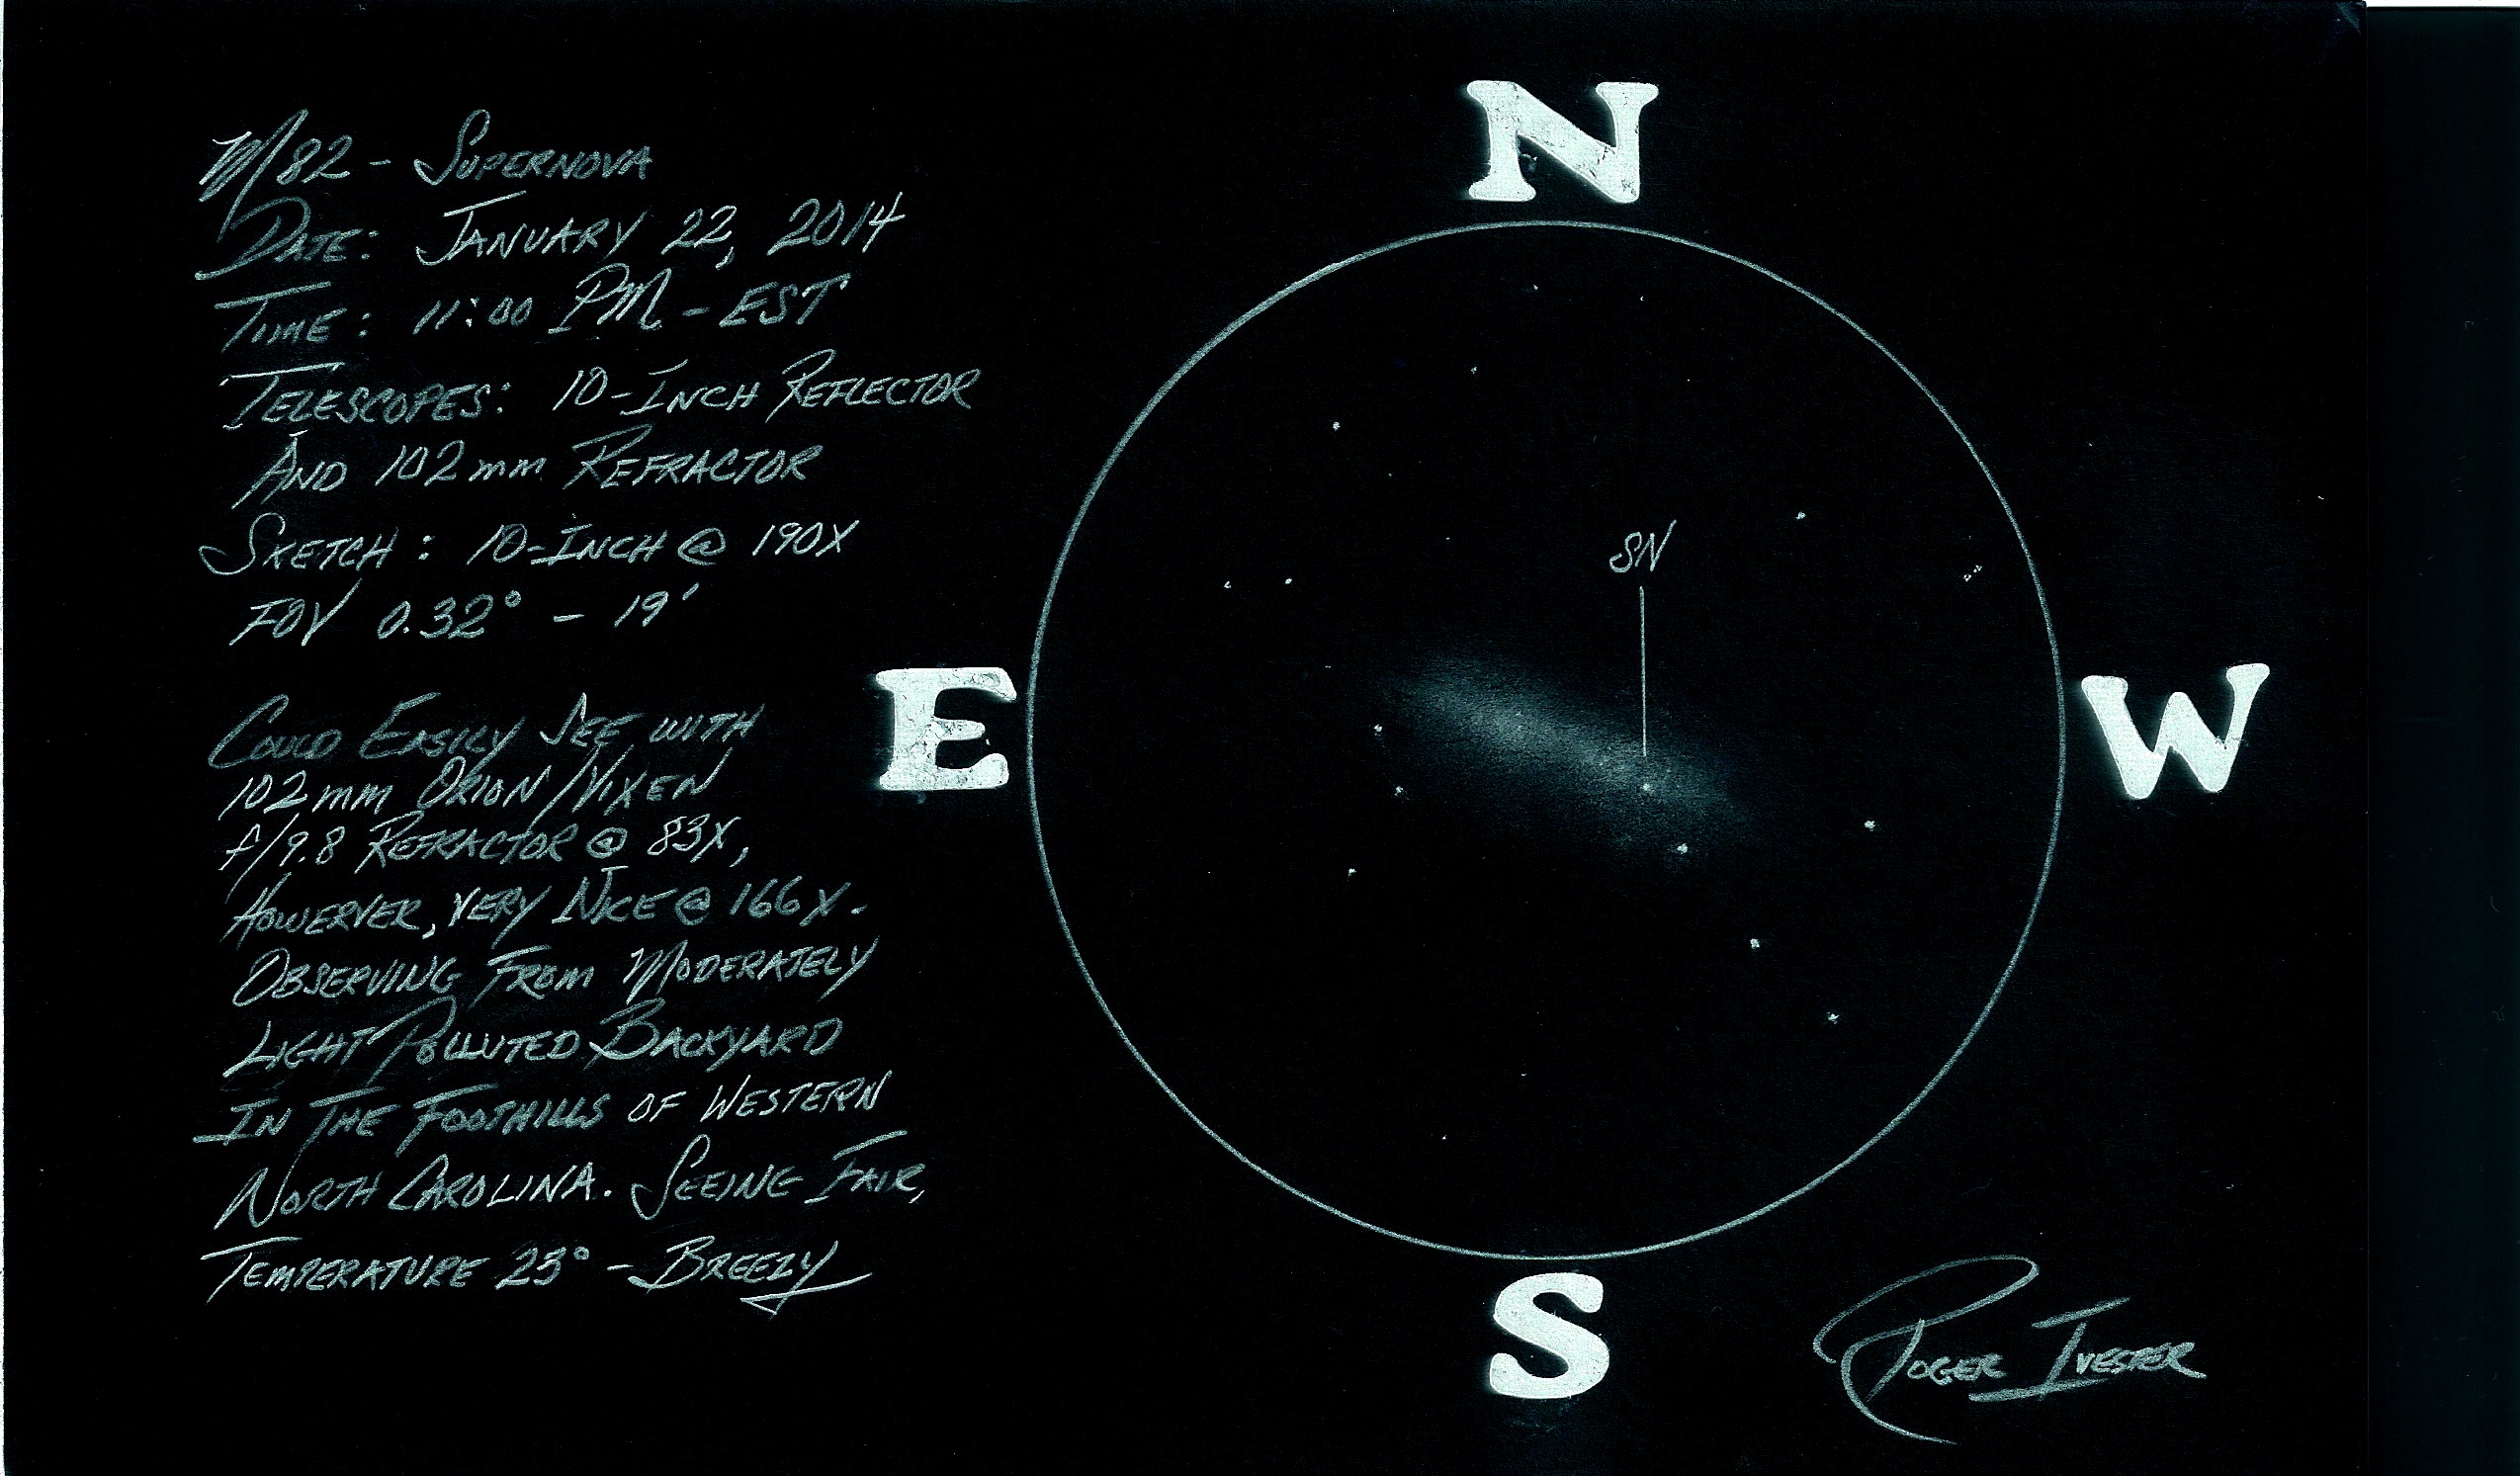 M/82 - SUPERNOVA
DATE: JANUARY 22, 2014
TIME: 11:00 PM - EST
TELESCOPES: 10-INCH REFLECTOR
AND 102mm REFRACTOR
SKETCH: 10-INCH @ 190X
FOV 0.32° - 19'
COULD EASILY SEE WITH
102mm ORION/VIXEN
f/9.8 REFRACTOR @ 83X,
HOWERVER, VERY NICE @ 166X.
OBSERVING FROM MODERATELY
LIGHT POLLUTED BACKYARD
IN THE FOOTHILLS OF WESTERN
NORTH CAROLINA. SEEING FAIR,
TEMPERATURE 23° - BREEZY
N
SN
E
W
S
ROGER IVESTER